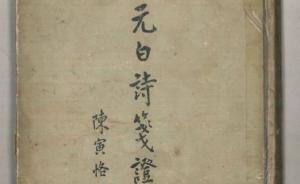 元白詩箋證
陳寅恪